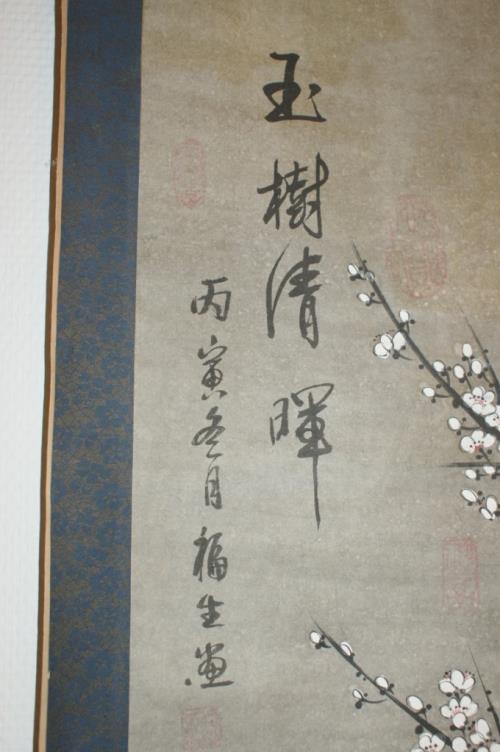 玉樹清暉
丙寅冬月福生画